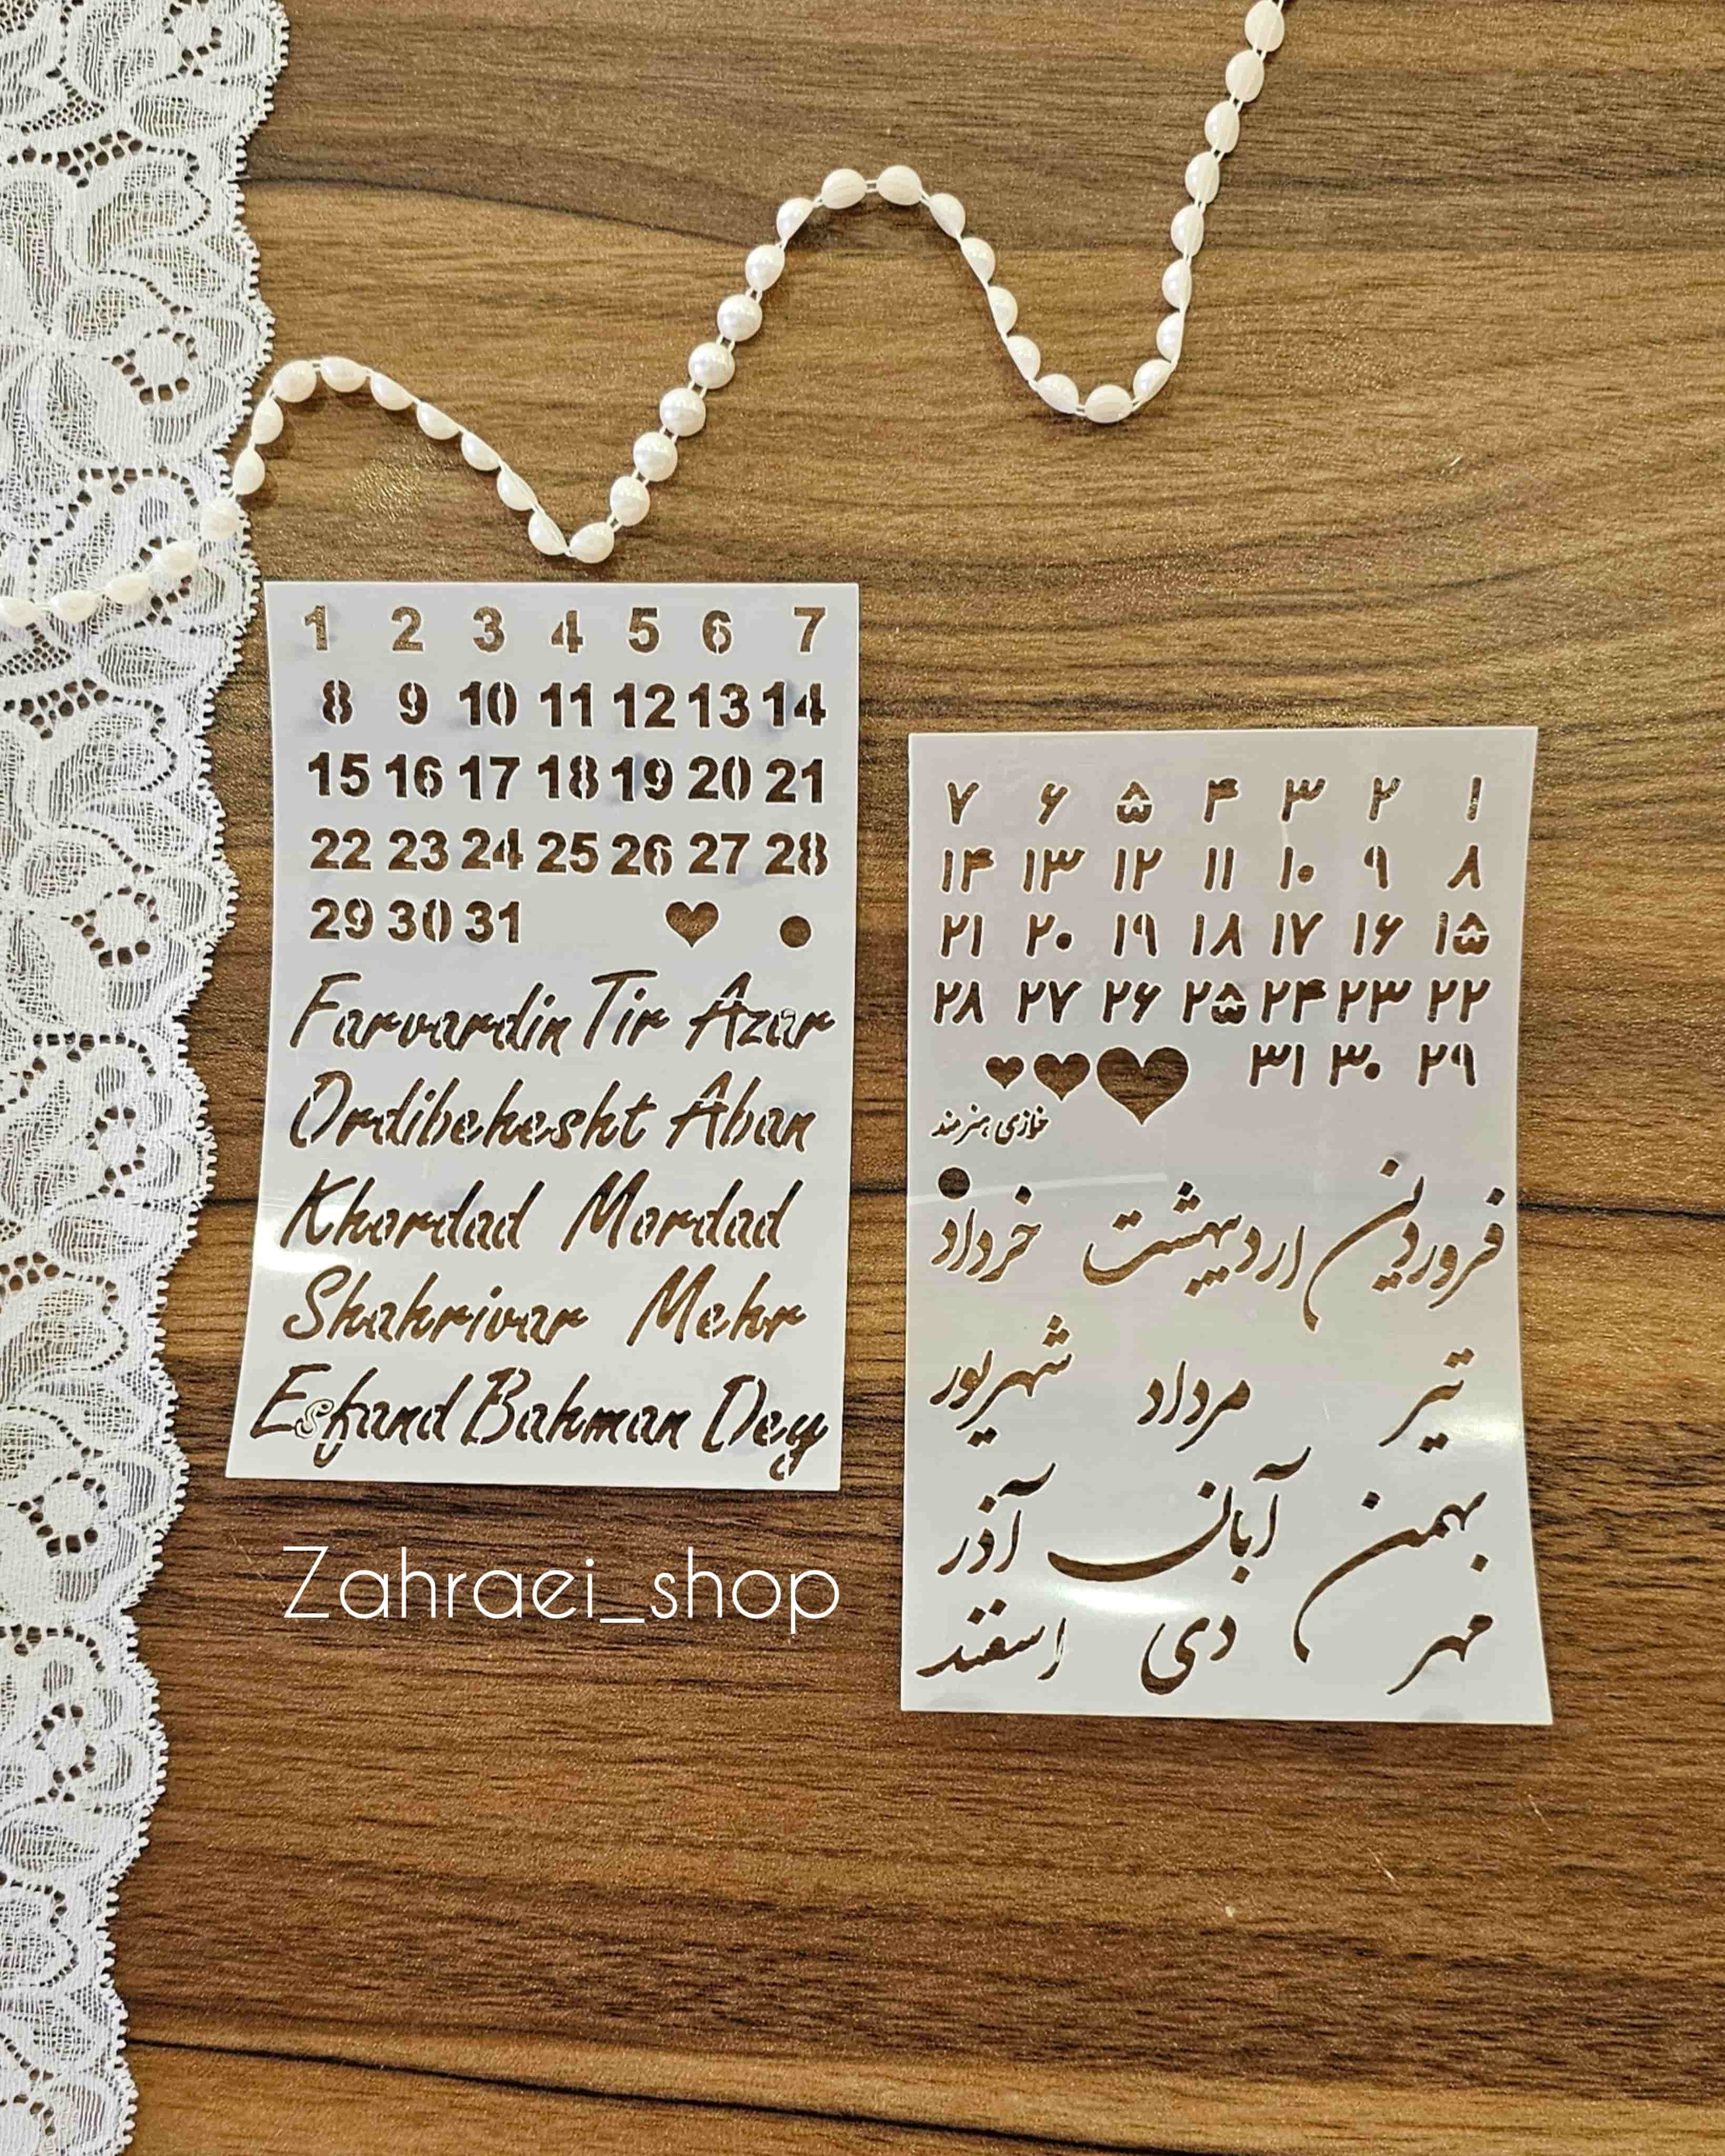 1 2 3 4 5 6 7
8 9 10 11 12 13 14
15 16 17 18 19 20 21
22 23 24 25 26 27 28
29 30 31
Farvardin Tir Azar
Ordibehesht Aban
Khordad Mordad
Shahrivar Mehr
Esfand Bahman Dey
۱ ۲ ۳ ۴ ۵ ۶ ۷
۸ ۹ ۱۰ ۱۱ ۱۲ ۱۳ ۱۴
۱۵ ۱۶ ۱۷ ۱۸ ۱۹ ۲۰ ۲۱
۲۲ ۲۳ ۲۴ ۲۵ ۲۶ ۲۷ ۲۸
۲۹ ۳۰ ۳۱
خرازی هنرمند
فروردین اردیبهشت خرداد
تیر مرداد شهریور
بهمن آبان آذر
مهر دی اسفند
Zahraei_shop